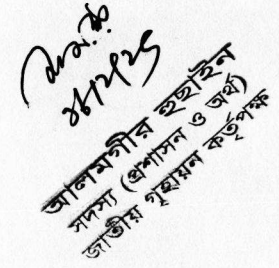 আলমগীর হুছাইন
সদস্য (প্রশাসন ও অর্থ)
জাতীয় গৃহায়ন কর্তৃপক্ষ